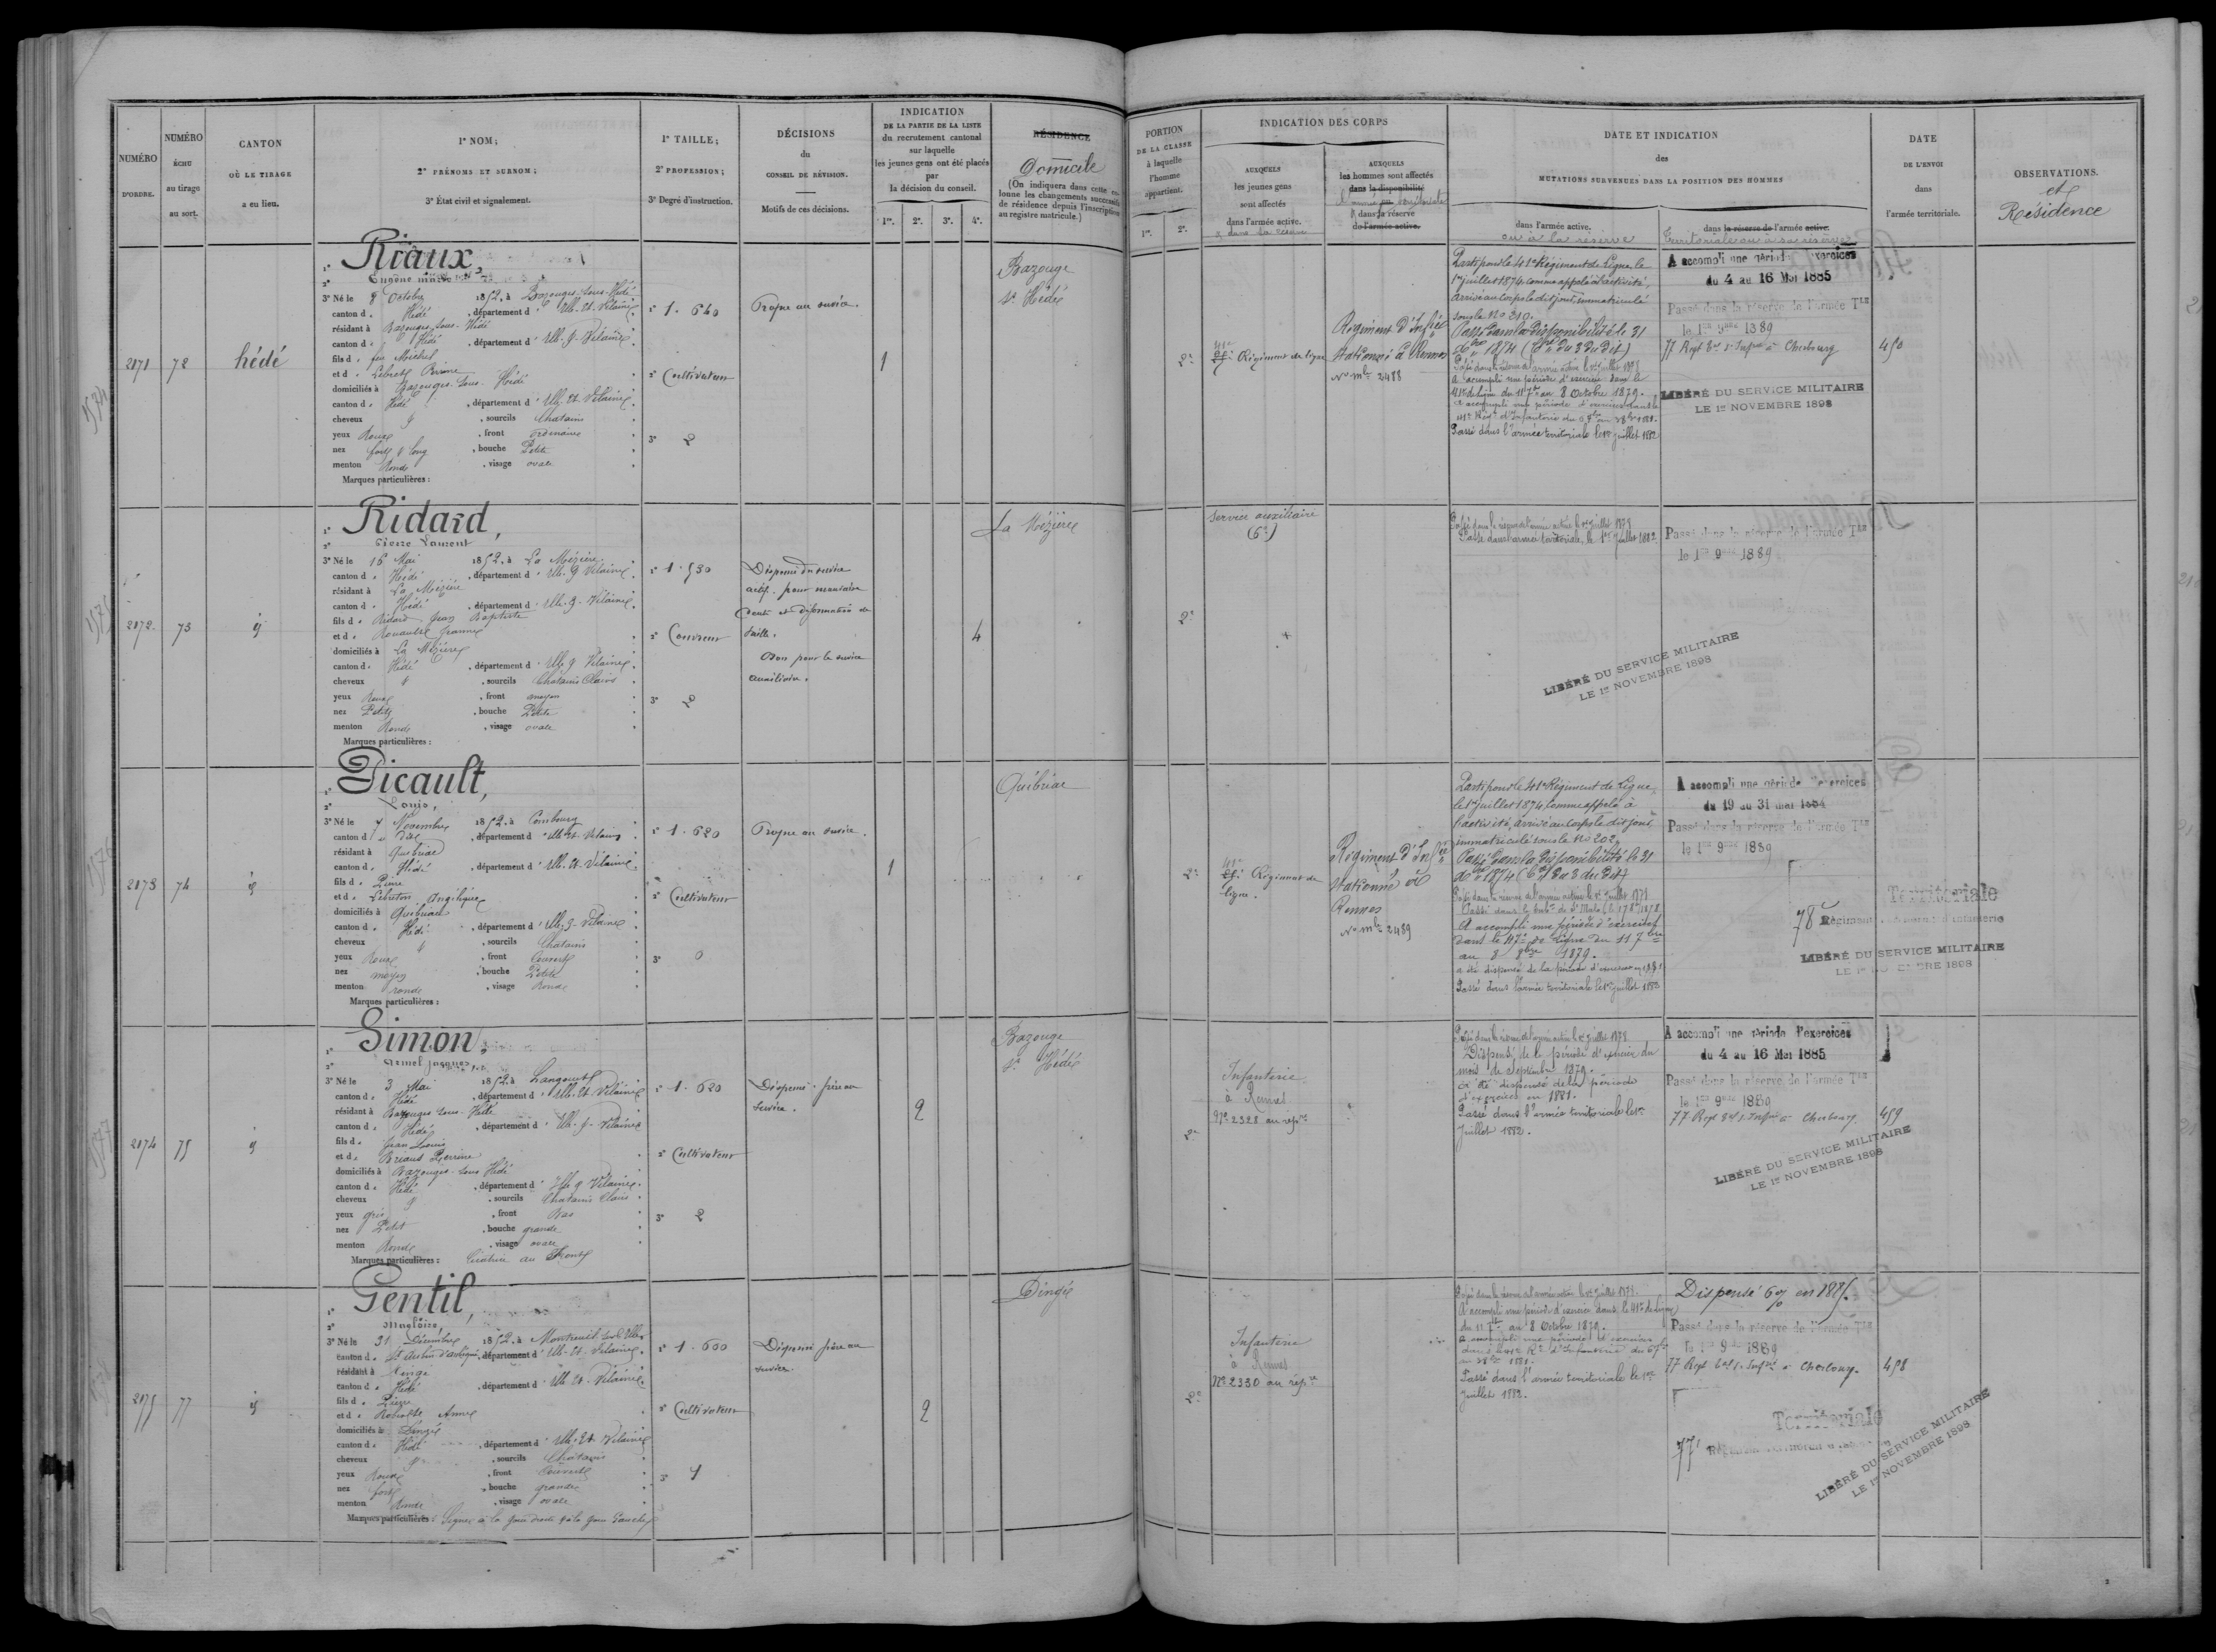 NUMÉRO
D'ORDRE.
NUMÉRO
ÉCHU
au tirage
au sort.
CANTON
OÙ LE TIRAGE
a eu lieu.
1° NOM;
2° PRÉNOMS ET SURNOM;
3° État civil et signalement.
1° TAILLE;
2° PROFESSION;
3° Degré d'instruction.
DÉCISIONS
du
CONSEIL DE RÉVISION.
Motifs de ces décisions.
INDICATION
DE LA PARTIE DE LA LISTE
du recrutement cantonal
sur laquelle
les jeunes gens ont été placés
par
la décision du conseil.
1re. 2e. 3e. 4e.
RÉSIDENCE
Domicile
(On indiquera dans cette co-
lonne les changements successifs
de résidence depuis l'inscription
au registre matricule.)
PORTION
DE LA CLASSE
à laquelle
l'homme
appartient.
1re. 2e.
INDICATION DES CORPS
AUXQUELS
les jeunes gens
sont affectés
dans l'armée active.
AUXQUELS
les hommes sont affectés
dans la disponibilité
ou
dans la réserve
de l'armée active.
DATE ET INDICATION
des
MUTATIONS SURVENUES DANS LA POSITION DES HOMMES
dans l'armée active.
ou à la réserve
dans la réserve de l'armée active.
Territoriale ou à sa réserve
DATE
DE L'ENVOI
dans
l'armée territoriale.
OBSERVATIONS.
et
Résidence
2171 72 hédé
1° Riaux
2° Eugène
3° Né le 8 Octobre 1852, à Bazouges-sous-Hédé
canton d. Hédé, département d'Ille-et-Vilaine.
résidant à Bazouges-sous-Hédé
canton d. Hédé, département d'Ille-&-Vilaine.
fils d. feu Michel
et d. Perrine
domiciliés à Bazouges-sous-Hédé
canton d. Hédé, département d'Ille-et-Vilaine.
cheveux, sourcils Chatains
yeux Roux, front ordinaire
nez fort & long, bouche Petite
menton Rond, visage ovale
Marques particulières :
1° 1.640
2° Cultivateur
3° 2
Propre au service.
1
Bazouge
s. Hédé
2e
41e Régiment de ligne
Régiment d'Infie
Stationné à Rennes
No mle 2488
Parti pour le 41e Régiment de Ligne, le
1er juillet 1874, comme appelé à l'activité,
Arrivé au Corps le dit jour, immatriculé
sous le No 210.
Passé dans la Disponibilité le 31
Xbre 1874 (Con du 3 du dit)
Passé dans la réserve de l'armée active le 1er juillet 1878
A accompli une période d'exercice dans le
41e de ligne du 11 7bre au 8 Octobre 1879.
Passé dans l'armée territoriale le 1er juillet 1882
A accompli une période d'exercices
du 4 au 16 Mai 1885
Passé dans la réserve de l'armée Tle
le 1er 9bre 1889
77 Regt Tal d'Infie à Cherbourg
LIBÉRÉ DU SERVICE MILITAIRE
LE 1er NOVEMBRE 1898
450
2172. 73 id
1° Ridard,
2° Pierre Laurent
3° Né le 16 Mai 1852, à La Mézière.
canton d. Hédé, département d'Ille-&-Vilaine.
résidant à La Mézière
canton d. Hédé, département d'Ille-&-Vilaine.
fils d. Ridard Jean Baptiste
et d. Jeanne
domiciliés à La Mézière
canton d. Hédé, département d'Ille-&-Vilaine.
cheveux, sourcils Chatains Clairs
yeux Roux, front moyen
nez Petit, bouche Petite
menton Rond, visage ovale
Marques particulières :
1° 1.530
2° Couvreur
3° 2
Dispensé du service
actif pour mauvaise
dents et déformation de
taille.
Bon pour le service
auxiliaire.
4
La Mézière
2e
Service auxiliaire
(6e)
Passé dans la réserve de l'armée active le 1er juillet 1878
Passé dans l'armée territoriale le 1er juillet 1882
Passé dans la réserve de l'armée Tle
le 1er 9bre 1889
LIBÉRÉ DU SERVICE MILITAIRE
LE 1er NOVEMBRE 1898
2173 74 id
1° Picault,
2° Louis,
3° Né le 7 Novembre 1852, à Combourg
canton d. dit, département d'Ille-et-Vilaine
résidant à Québriac
canton d. Hédé, département d'Ille-et-Vilaine
fils d. Pierre
et d. Lebreton Angélique
domiciliés à Québriac
canton d. Hédé, département d'Ille-&-Vilaine
cheveux, sourcils Chatains
yeux Roux, front Couvert
nez moyen, bouche Petite
menton ronde, visage Rond
Marques particulières :
1° 1.620
2° Cultivateur
3° 0
Propre au service.
1
Québriac
2e
41e Régiment de
ligne.
Régiment d'Infie
stationné à
Rennes
No mle 2489
Parti pour le 41e Régiment de Ligne,
le 1er juillet 1874, Comme appelé à
l'activité, arrivé au Corps le dit jour,
immatriculé sous le No 202.
Passé dans la Disponibilité le 31
Xbre 1874 (Con du 3 du Dit)
Passé dans la réserve de l'armée active le 1er juillet 1878
A accompli une période d'exercices
dans le 47e de ligne du 11 7bre
au 8 8bre 1879.
a été dispensé de la période d'exercices en 1881
Passé dans l'armée territoriale le 1er juillet 1882
A accompli une période d'exercices
du 19 au 31 mai 1884
Passé dans la réserve de l'armée Tle
le 1er 9bre 1889
Territoriale
78e Régiment d'infanterie
LIBÉRÉ DU SERVICE MILITAIRE
LE 1er NOVEMBRE 1898
2174 75 id
1° Simon,
2° Armel Jacques
3° Né le 3 Mai 1852, à Langouet
canton d. Hédé, département d'Ille-et-Vilaine
résidant à Bazouges-sous-Hédé
canton d. Hédé, département d'Ille-&-Vilaine
fils d. Jean Louis
et d. Briand Perrine
domiciliés à Bazouges-sous-Hédé
canton d. Hédé, département d'Ille-&-Vilaine.
cheveux, sourcils Chatains Clairs
yeux gris, front Bas
nez Petit, bouche grande
menton Rond, visage ovale
Marques particulières : Cicatrice au Front
1° 1.620
2° Cultivateur
3° 2
Dispensé frère au
service.
2
Bazouge
s. Hédé
2e
Infanterie
à Rennes
No 2328 au répre
Passé dans la réserve de l'armée active le 1er juillet 1878
Dispensé de la période d'exercice du
mois de Septembre 1879.
a été dispensé de la période
d'exercices en 1881.
Passé dans l'armée territoriale le 1er
Juillet 1882.
A accompli une période d'exercices
du 4 au 16 Mai 1885
Passé dans la réserve de l'armée Tle
le 1er 9bre 1889
77 Regt Tal d'Infie à Cherbourg
LIBÉRÉ DU SERVICE MILITAIRE
LE 1er NOVEMBRE 1898
459
2175 77 id
1° Gentil,
2° Magloire,
3° Né le 31 Décembre 1852, à Montreuil-sur-Ille
canton d. St Aubin d'aubigné, département d'Ille-et-Vilaine.
résidant à Dingé
canton d. Hédé, département d'Ille-et-Vilaine.
fils d. Pierre
et d. Anne
domiciliés à Dingé
canton d. Hédé, département d'Ille-et-Vilaine
cheveux, sourcils Chatains
yeux Roux, front Couvert
nez fort, bouche grande
menton Rond, visage ovale
Marques particulières : Signes à la joue droite & à la joue Gauche
1° 1.600
2° Cultivateur
3° 1
Dispensé frère au
service.
2
Dingé
2e
Infanterie
à Rennes
No 2330 au répre
Passé dans la réserve de l'armée active le 1er juillet 1878.
A accompli une période d'exercice dans le 41e de Ligne
du 11 7bre au 8 Octobre 1879.
Passé dans l'armée territoriale le 1er
Juillet 1882.
Dispensé 6 % en 1885.
Passé dans la réserve de l'armée Tle
le 1er 9bre 1889
77 Regt Tal d'Infie à Cherbourg.
Territoriale
77e
LIBÉRÉ DU SERVICE MILITAIRE
LE 1er NOVEMBRE 1898
458